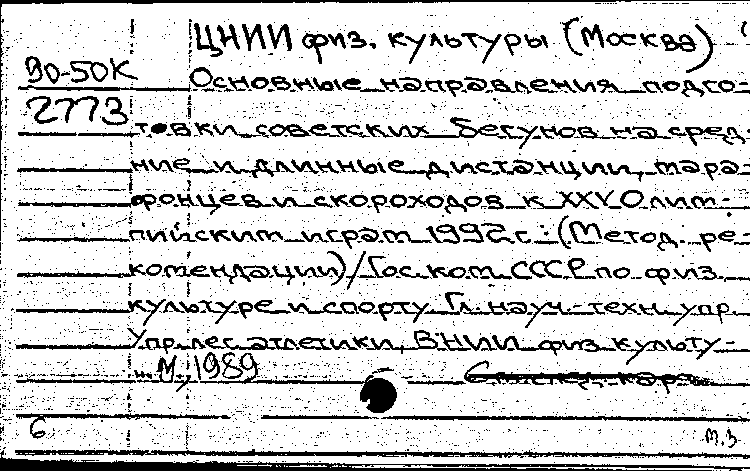 ЦНИИ физ. культуры (Москва)
90-50К
Основные направления подго-
2773
товки советских бегунов на сред-
ние и длинные дистанции, мара-
фонцев и скороходов к XXV Олим-
пийским играм 1992 г.: (Метод. ре-
комендации) / Гос. ком. СССР по физ.
культуре и спорту. Гл. науч.-техн. упр.
Упр. лег. атлетики, ВНИИ физ. культу-
... М., 1989
6
М.З